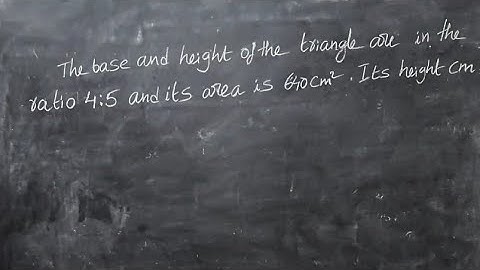 The base and height of the triangle are in the
ratio 4:5 and its area is 640cm². Its height cm